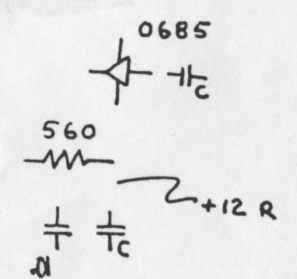 0685
C
560
+12 R
C
.01